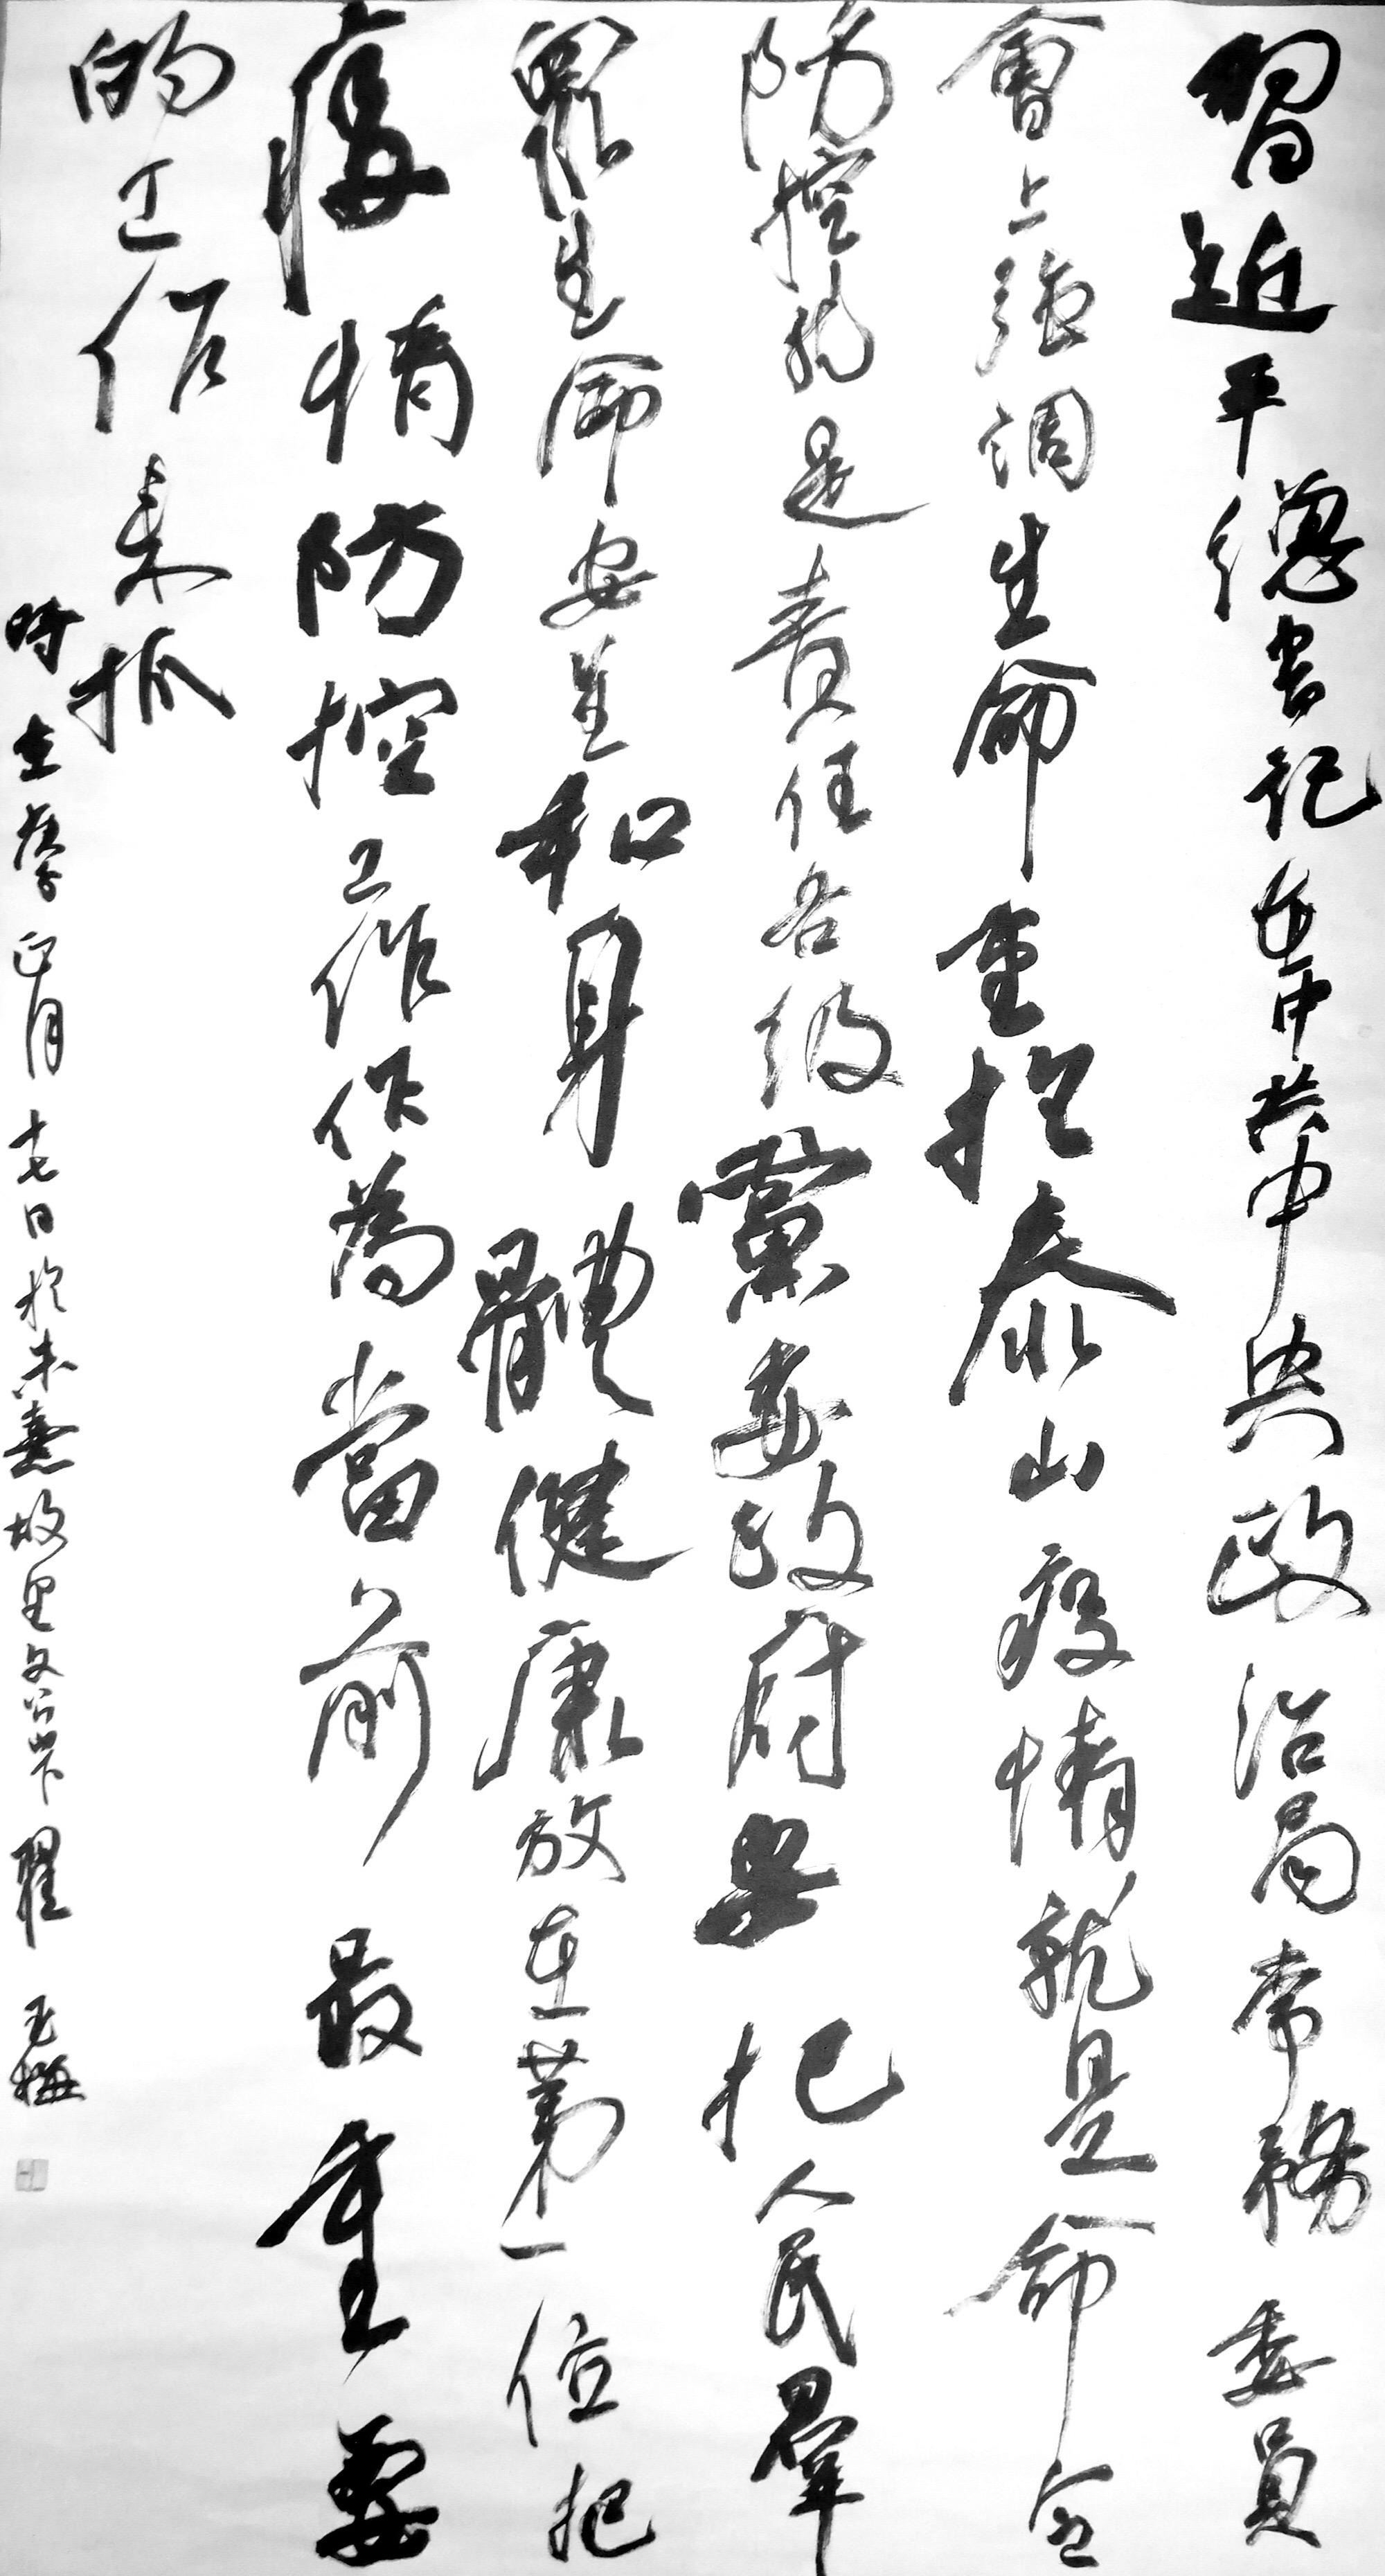 習近平總書記在中共中央政治局常務委員
會上強調生命重於泰山疫情就是命令
防控就是責任各級黨委政府要把人民羣
眾生命安全和身體健康放在第一位把
疫情防控工作作為當前最重要
的工作來抓
時在庚子正月十七日於朱熹故里文公山下翟玉梅